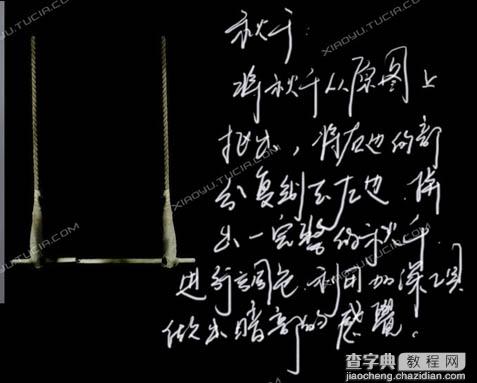 秋千:
将秋千从原图上
抠出，将右边的部
分复制至左边，拼
出一完整的秋千。
进行调色.利用加深工具
做出暗部的感覺。
XIAOYU.TUCIA.COM
查字典 教程网
jiaocheng.chazidian.com